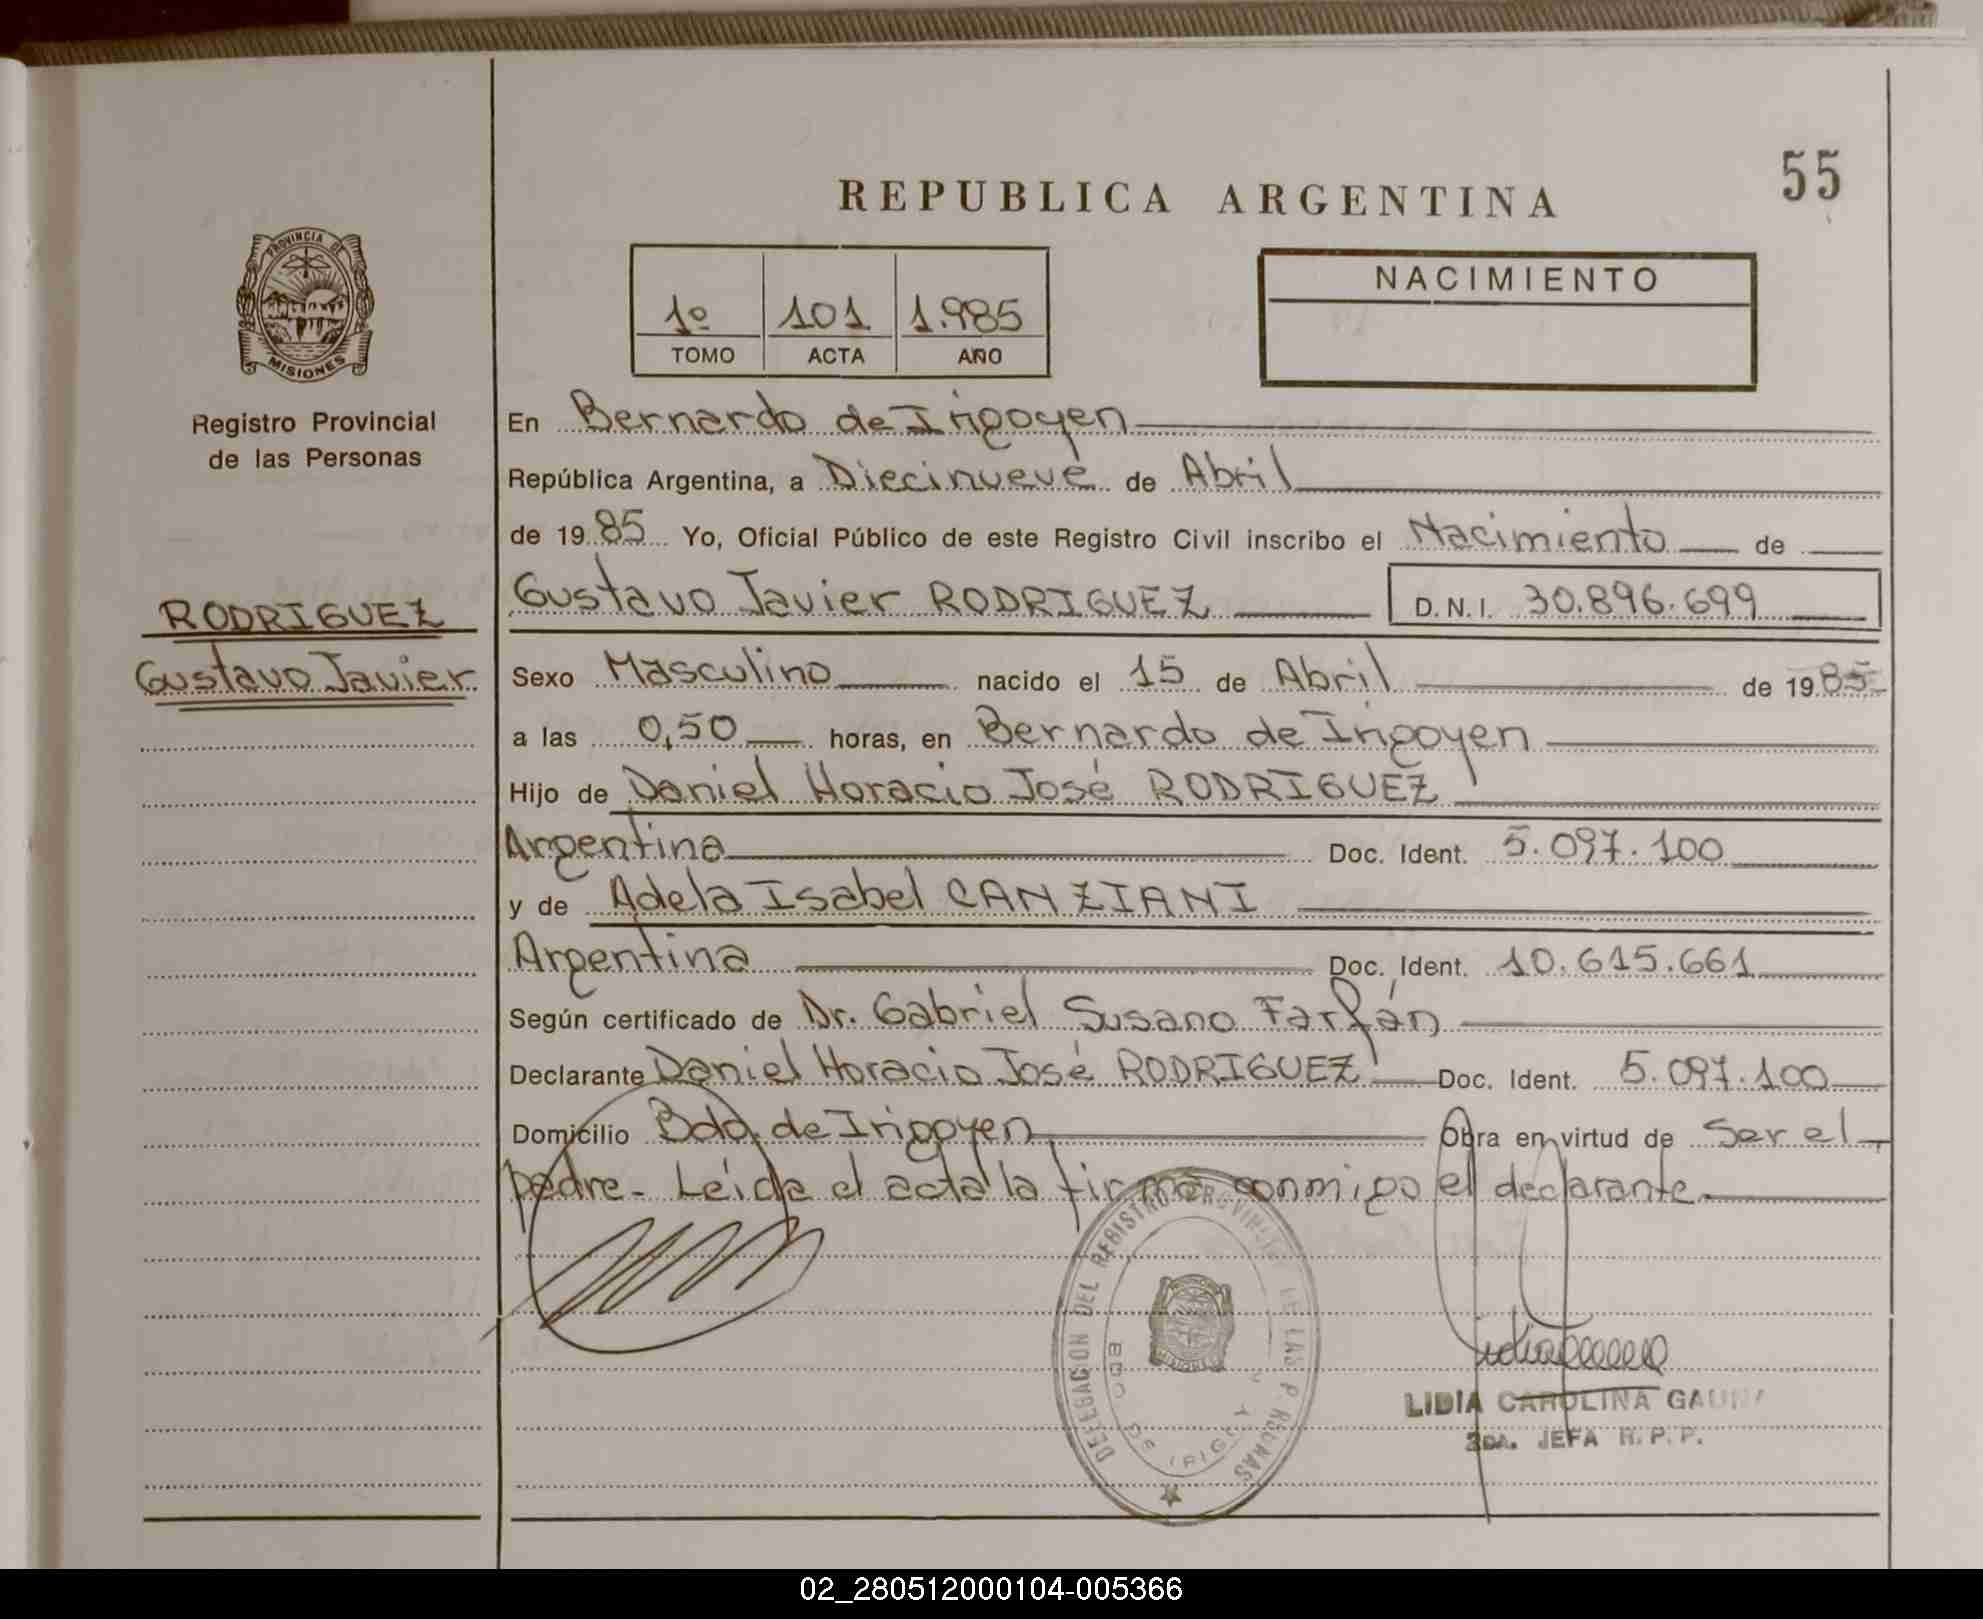 55
REPUBLICA ARGENTINA
PROVINCIA DE
MISIONES
Registro Provincial
de las Personas
1º 101 1.985
TOMO ACTA AÑO
NACIMIENTO
En Bernardo de Irigoyen
República Argentina, a Diecinueve de Abril
de 1985 Yo, Oficial Público de este Registro Civil inscribo el Nacimiento de
Gustavo Javier RODRIGUEZ D.N.I. 30.896.699
RODRIGUEZ
Gustavo Javier
Sexo Masculino nacido el 15 de Abril de 1985
a las 0,50 horas, en Bernardo de Irigoyen
Hijo de Daniel Horacio José RODRIGUEZ
Argentina Doc. Ident. 5.097.100
y de Adela Isabel CANZIANI
Argentina Doc. Ident. 10.615.661
Según certificado de Dr. Gabriel Susano Farfán
Declarante Daniel Horacio José RODRIGUEZ Doc. Ident. 5.097.100
Domicilio Bdo. de Irigoyen Obra en virtud de Ser el
padre- Leída el acta la firma conmigo el declarante.
DELEGACION DEL REGISTRO PROVINCIAL DE LAS PERSONAS
BDO DE IRIGOYEN
MISIONES
LIDIA CAROLINA GAUNA
2DA. JEFA R.P.P.
02_280512000104-005366